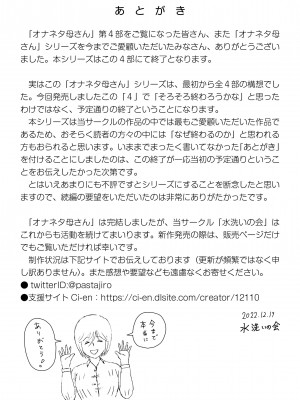 あとがき
「オナネタ母さん」第４部をご覧になった皆さん、また「オナネタ母さ
ん」シリーズを今までご愛顧いただいたみなさん、ありがとうござい
ました。本シリーズはこの４部にて終了となります。
実はこの「オナネタ母さん」シリーズは、最初から全４部の構想でし
た。今回発売しましたこの「４」で「そろそろ終わろうかな」と思った
わけではなく、予定通りの終了ということになります。
本シリーズは当サークルの作品の中では最もご愛顧いただいた作品で
あるため、おそらく読者の方々の中には「なぜ終わるのか」と思われる
方もおられると思います。いままでまったく書いてなかった「あとがき」
を付けることにしましたのは、この終了が一応当初の予定通りというこ
とをお伝えしたかった次第です。
とはいえあまりにも不評ですとシリーズにすることを断念したと思い
ますので、続編の要望をいただいたのは非常にありがたかったです。
「オナネタ母さん」は完結しましたが、当サークル「水洗いの会」は
これからも活動を続けてまいります。新作発売の際は、販売ページだけ
でもご覧いただければ幸いです。
制作状況は下記サイトでお伝えしております（更新が頻繁ではなく申
し訳ありません）。また感想や要望なども遠慮なくお寄せください。
● twitterID:@pastajiro
●支援サイト Ci-en：https://ci-en.dlsite.com/creator/12110
今まで
本当に
ありがとう
2022.12.17
水洗いの会